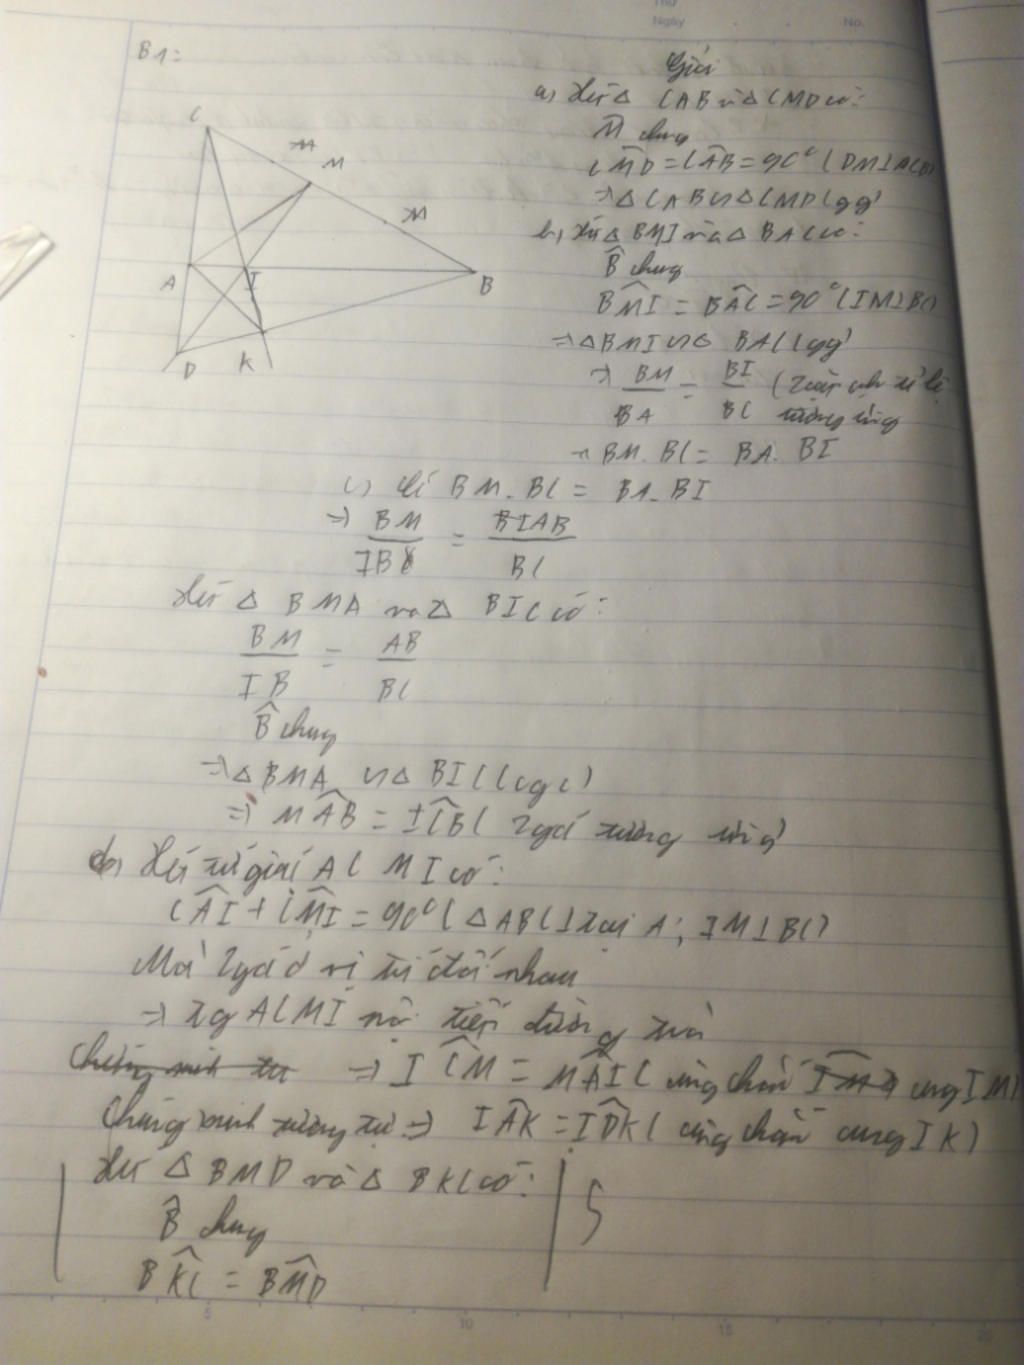 Thứ
Ngày No.
B1:
Giải
a, Xét Δ CAB và Δ CMD có:
M̂ chung
CM̂D = CÂB = 90° (DM⊥CB)
⇒ Δ CAB ∽ Δ CMD (gg)
b, Xét Δ BMI và Δ BAC có:
B̂ chung
BM̂I = BÂC = 90° (IM⊥BC)
⇒ Δ BMI ∽ Δ BAC (gg)
⇒ BM/BA = BI/BC (2 cặp cạnh tỉ lệ
tương ứng
⇒ BM. BC = BA. BI
c, Vì BM. BC = BA. BI
⇒ BM/IB = AB/BC
Xét Δ BMA và Δ BIC có:
BM/IB = AB/BC
B̂ chung
⇒ Δ BMA ∽ Δ BIC (cgc)
⇒ MÂB = IĈB ( 2 góc tương ứng)
d, Xét tứ giác ACMI có:
CÂI + CM̂I = 90° ( Δ ABC ⊥ tại A; IM⊥BC)
Mà 2 góc ở vị trí đối nhau
⇒ tg ACMI nội tiếp đường tròn
Chứng minh tư ⇒ IĈM = MÂI ( cùng chắn cung IM)
Chứng minh tương tự ⇒ IÂK = ID̂K ( cùng chắn cung IK)
Xét Δ BMD và Δ BKC có:
B̂ chung
BK̂C = BM̂D
C
M
M
M
A
I
B
D
K
5
10
15
20